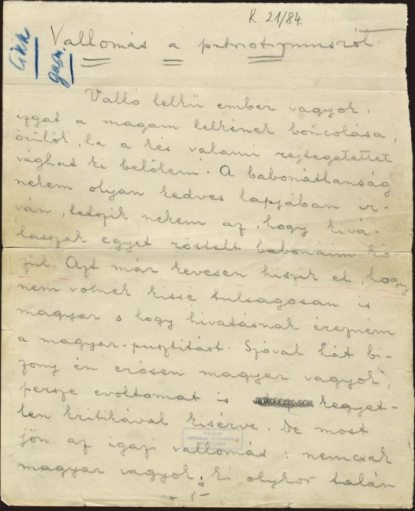 K. 21/84.
Cikk
Vallomás a patriotizmusról.
Valló lelkű ember vagyok,
izgat a magam lelkének boncolása,
örülök, ha a kés valami rejtegetettet
vághat ki belőlem. A babonátlanság
nekem olyan kedves lapjában ir-
ván, tetszik nekem az, hogy kivá-
lasszak egyet röstelt babonáim kö-
zül. Azt már kevesen hiszik el, hogy
nem volnék kissé tulságosan is
magyar s hogy hivatásnak érezném
a magyar-pusztitást. Szóval hát bi-
zony én erősen magyar vagyok,
persze evoltomat is kegyet-
len kritikával kisérve. De most
jön az igazi vallomás: nemcsak
magyar vagyok, ki olykor talán
- 1 -